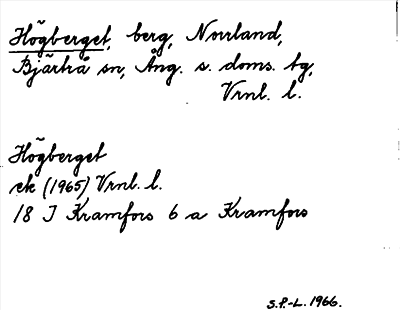 Högberget, berg, Norrland,
Bjärtrå sn, Ång. s. doms. tg,
Vrnl. l.
Högberget
ek (1965) Vrnl. l.
18 I Kramfors 6 a Kramfors
S.P.-L. 1966.